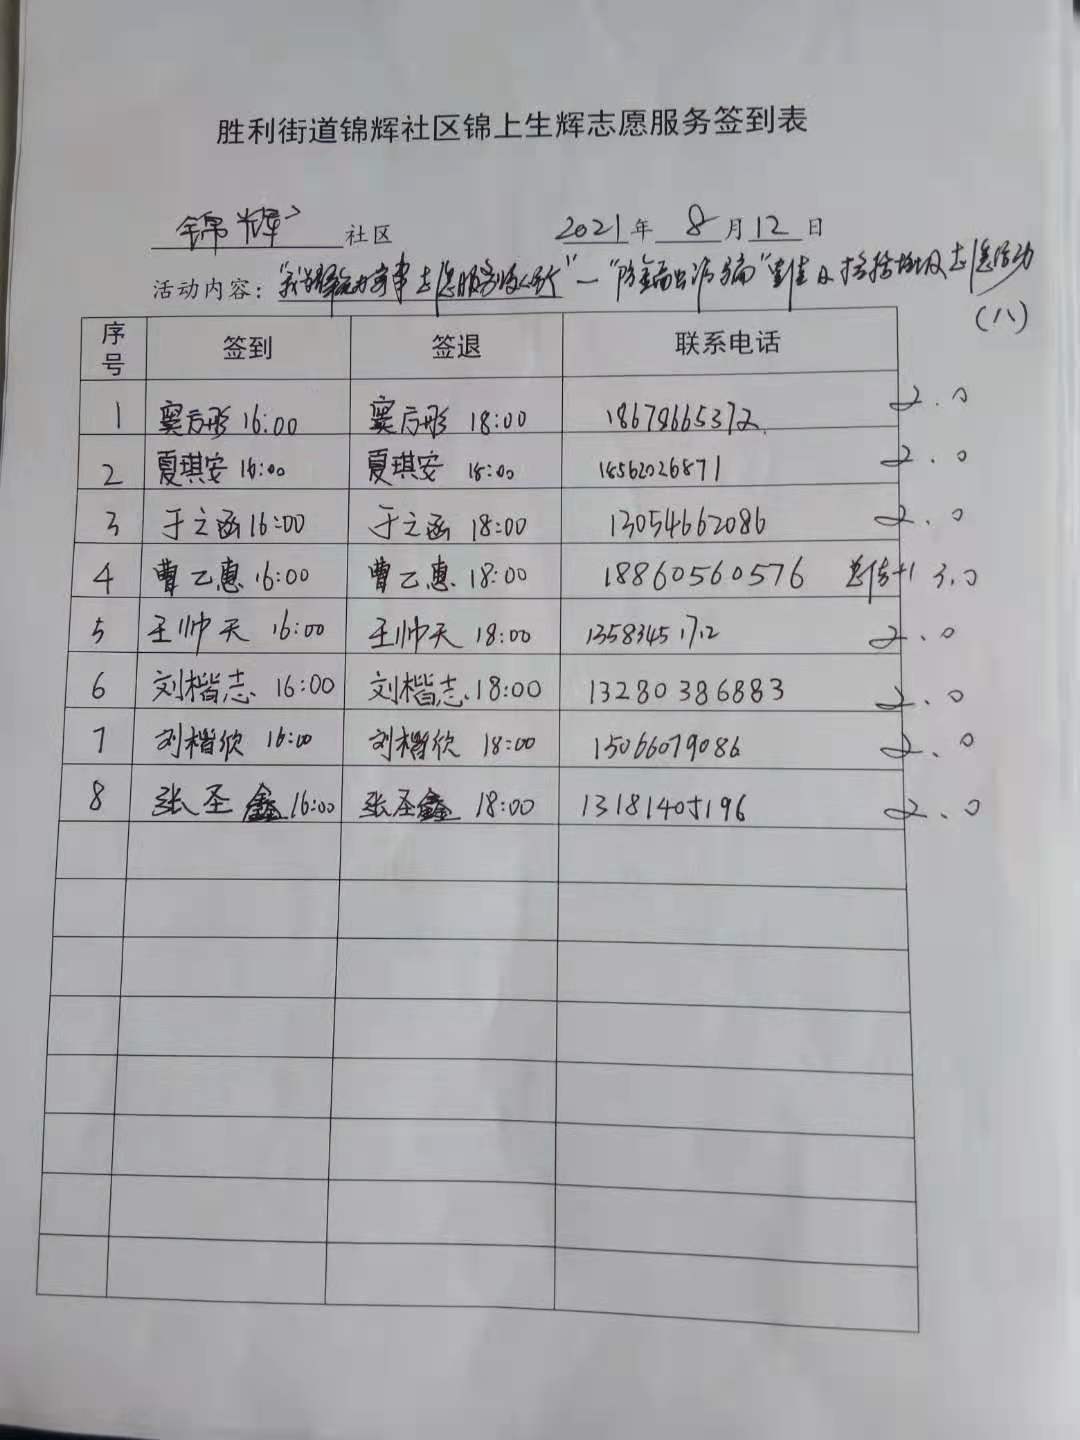 胜利街道锦辉社区锦上生辉志愿服务签到表
锦辉 社区 2021年 8 月 12 日
活动内容："我为群众办实事志愿服务"—"防金融诈骗"宣传及捡拾垃圾志愿活动
(八)
序号 签到 签退 联系电话
1 窦方彤 16:00 窦方彤 18:00 18678665372 2.0
2 夏琪安 16:00 夏琪安 18:00 18562026871 2.0
3 于之函 16:00 于之函 18:00 13054662086 2.0
4 曹乙惠 16:00 曹乙惠 18:00 18860560576 宣传+1 3.0
5 王帅天 16:00 王帅天 18:00 13583451712 2.0
6 刘楷志 16:00 刘楷志 18:00 13280386883 2.0
7 刘楷欣 16:00 刘楷欣 18:00 15066079086 2.0
8 张圣鑫 16:00 张圣鑫 18:00 13181405196 2.0